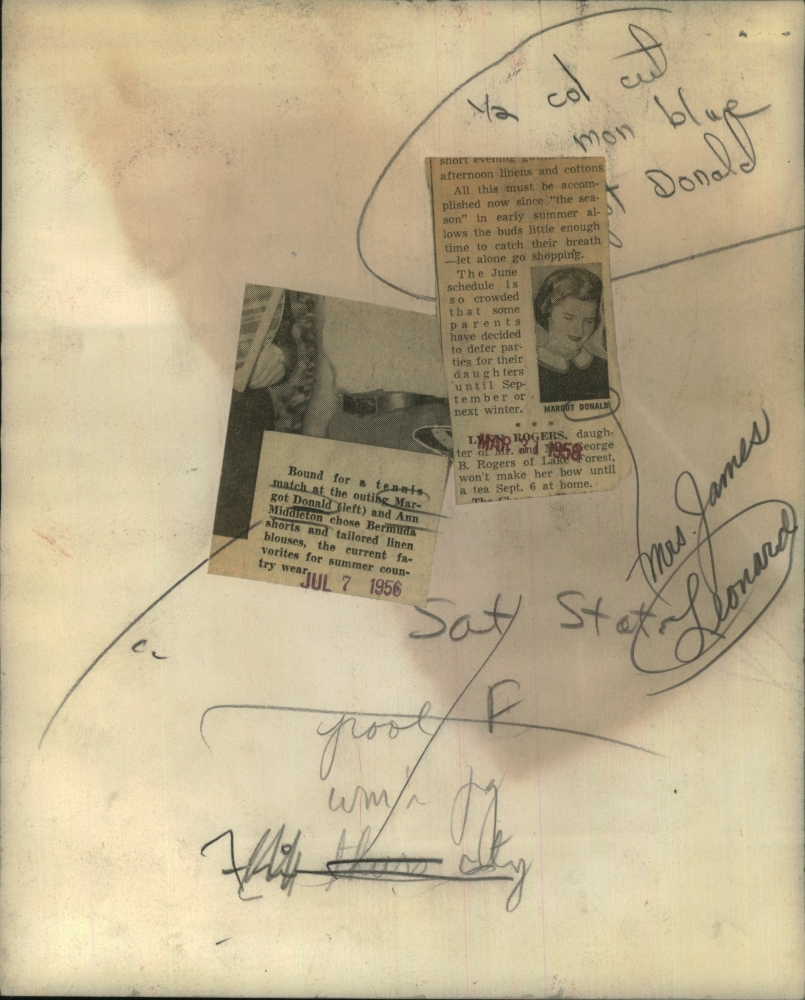 1/2 col cut
mon blue
Donald
short evening
afternoon linens and cottons
All this must be accom-
plished now since "the sea-
son" in early summer al-
lows the buds little enough
time to catch their breath
—let alone go shopping.
The June
schedule is
so crowded
that some
parents
have decided
to defer par-
ties for their
daughters
until Sep-
tember or
next winter.
MARGOT DONALD
* * *
LYNN ROGERS, daugh-
ter of Mr. and Mrs. George
B. Rogers of Lake Forest,
won't make her bow until
a tea Sept. 6 at home.
MAR 31 1956
Bound for a tennis
match at the outing Mar-
got Donald (left) and Ann
Middleton chose Bermuda
shorts and tailored linen
blouses, the current fa-
vorites for summer coun-
try wear.
JUL 7 1956
Mrs. James
Leonard
Sat
pool F